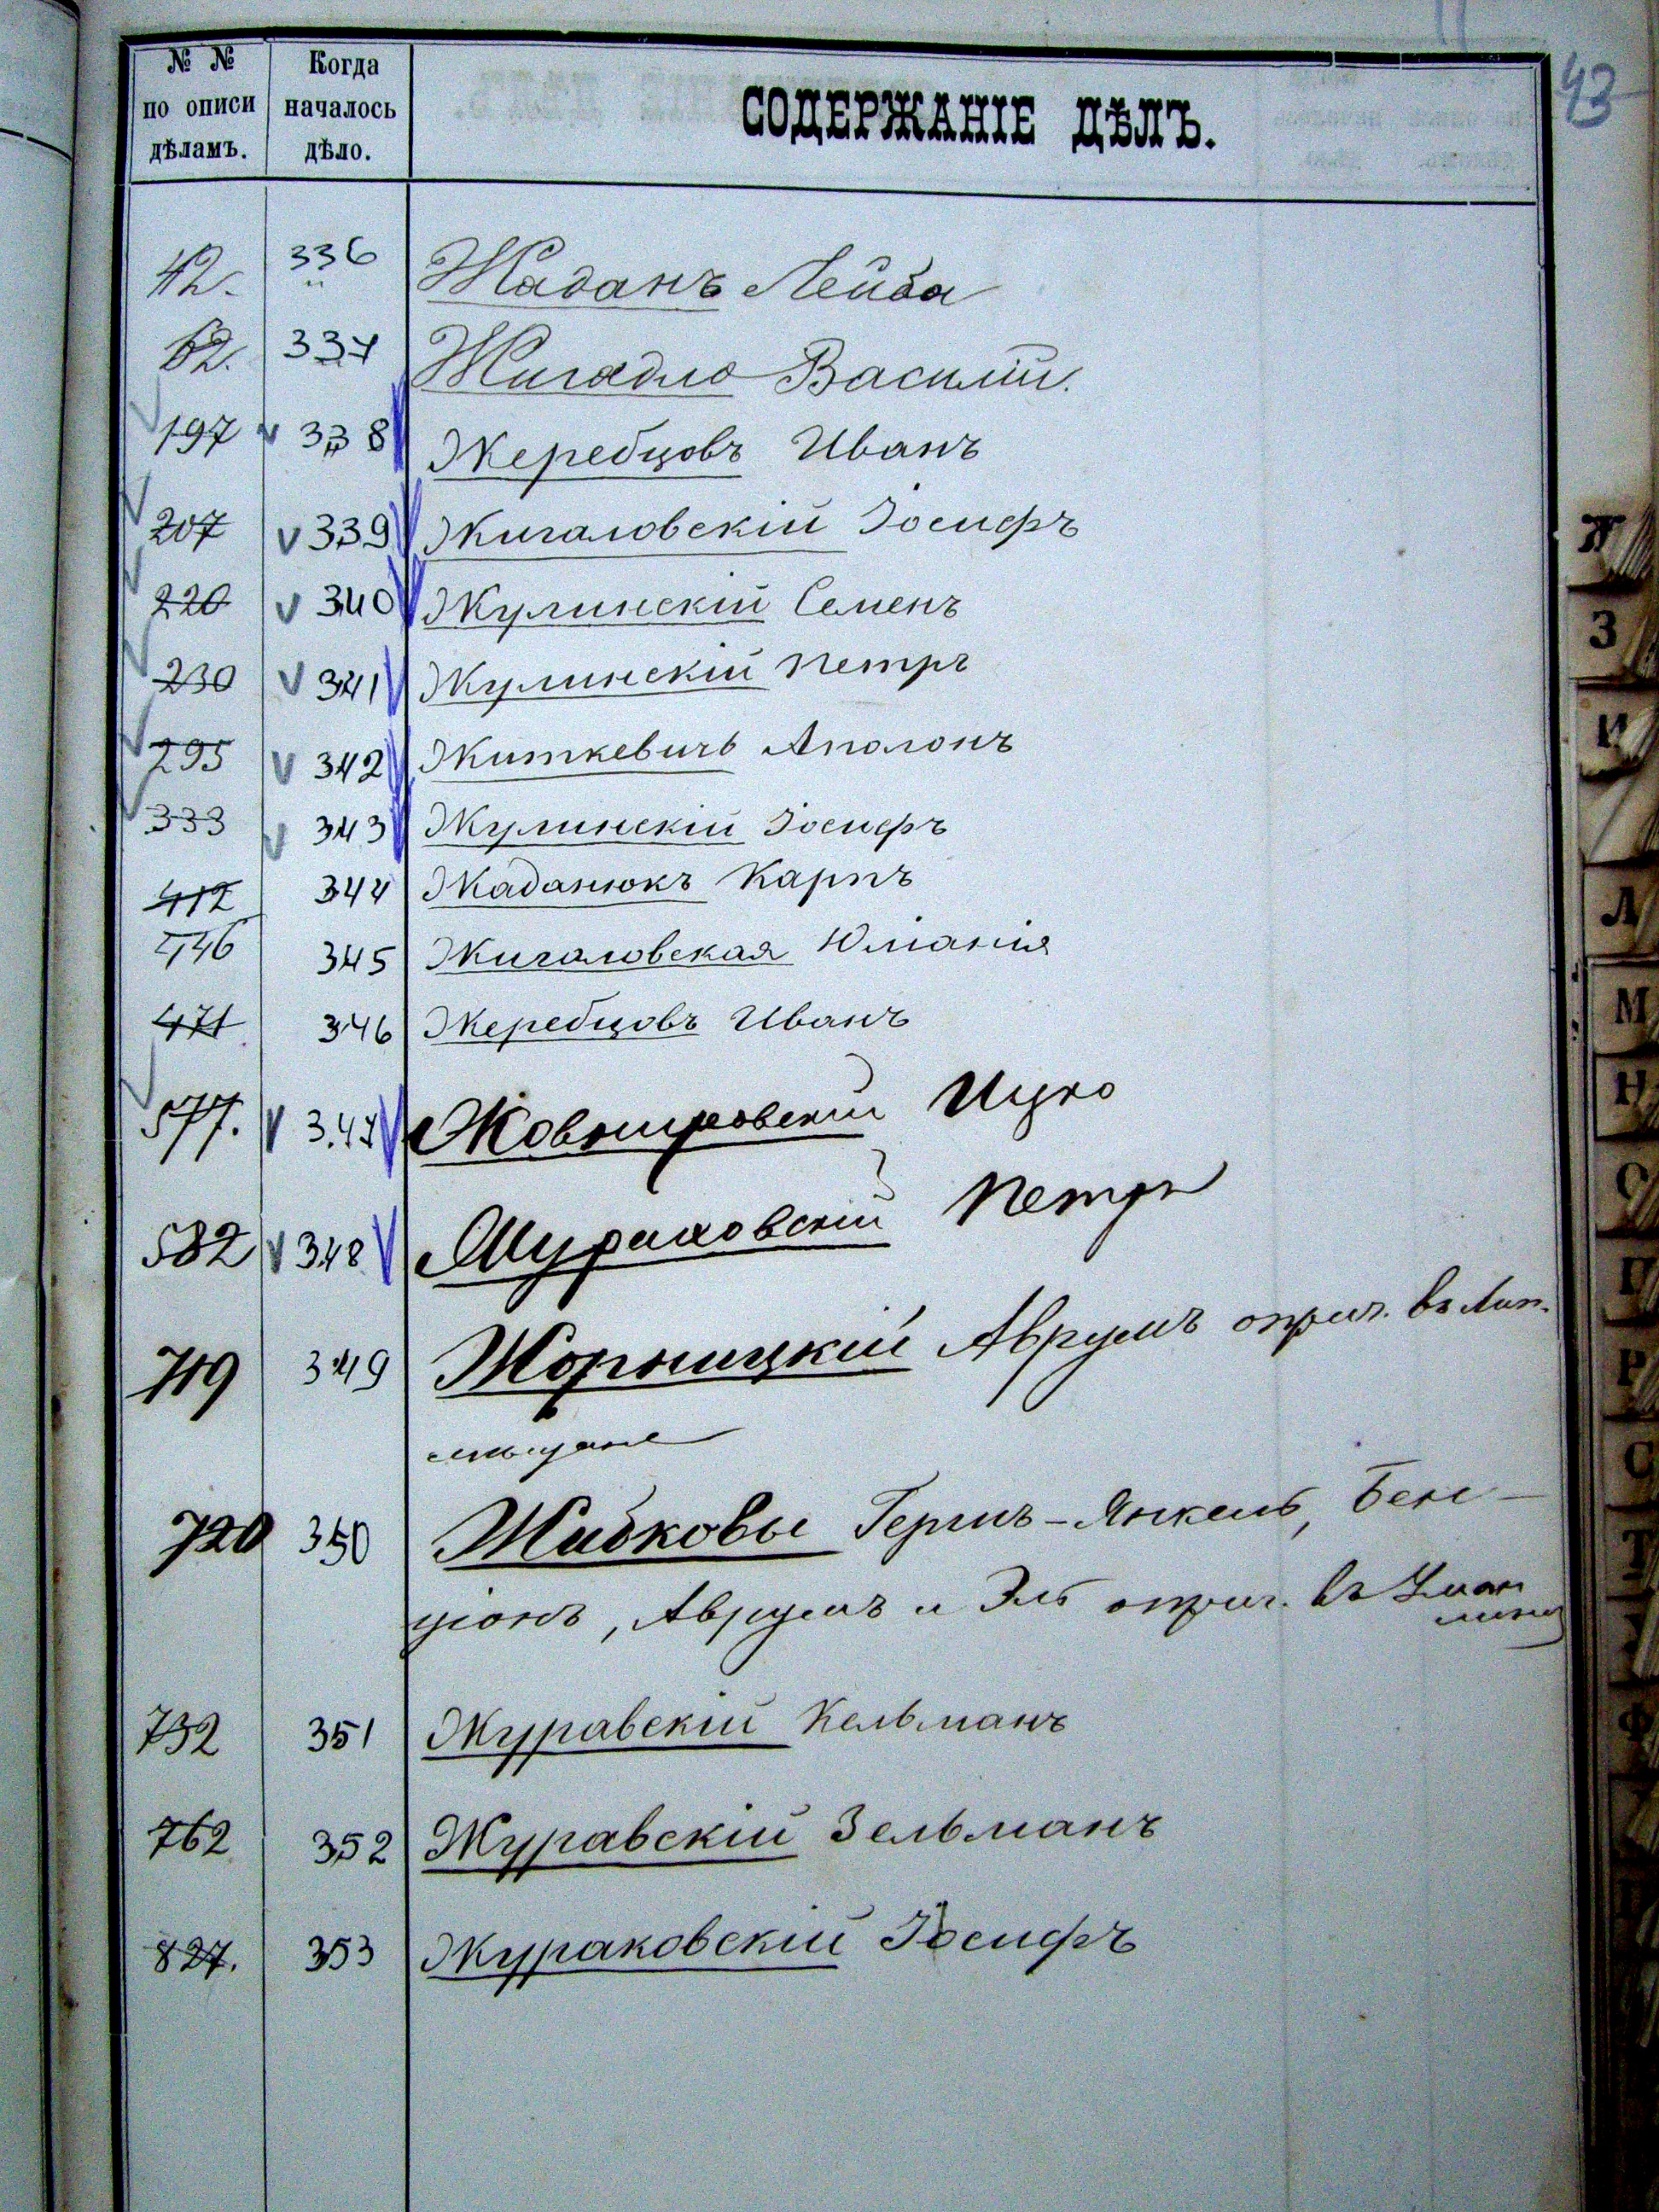 43
№ № по описи дѣламъ. Когда началось дѣло. СОДЕРЖАНІЕ ДѢЛЪ.
42. 336 Жаданъ Лейба
62. 337 Жигадло Василій.
197 v 338 Жеребцовъ Иванъ
207 v 339 Жигаловскій Іосифъ
220 v 340 Жулинскій Семенъ
230 v 341 Жулинскій Петръ
295 v 342 Житкевичъ Аполонъ
333 v 343 Жулинскій Іосифъ
412 344 Жаданюкъ Карпъ
446 345 Жигаловская Юліанія
471 346 Жеребцовъ Иванъ
577. v 347 Жовнировскій Ицко
582 v 348 Жураховскій Петръ
719 349 Жорницкій Аврумъ оприч. въ Лип.
мѣщане
720 350 Жидковы Гершъ-Янкель, Бен-
ціонъ, Аврумъ и Эль оприч. въ Уман
732 351 Журавскій Кельманъ
762 352 Журавскій Зельманъ
827. 353 Жураковскій Іосифъ
З
И
Л
М
Н
О
П
Р
С
Т
Ф